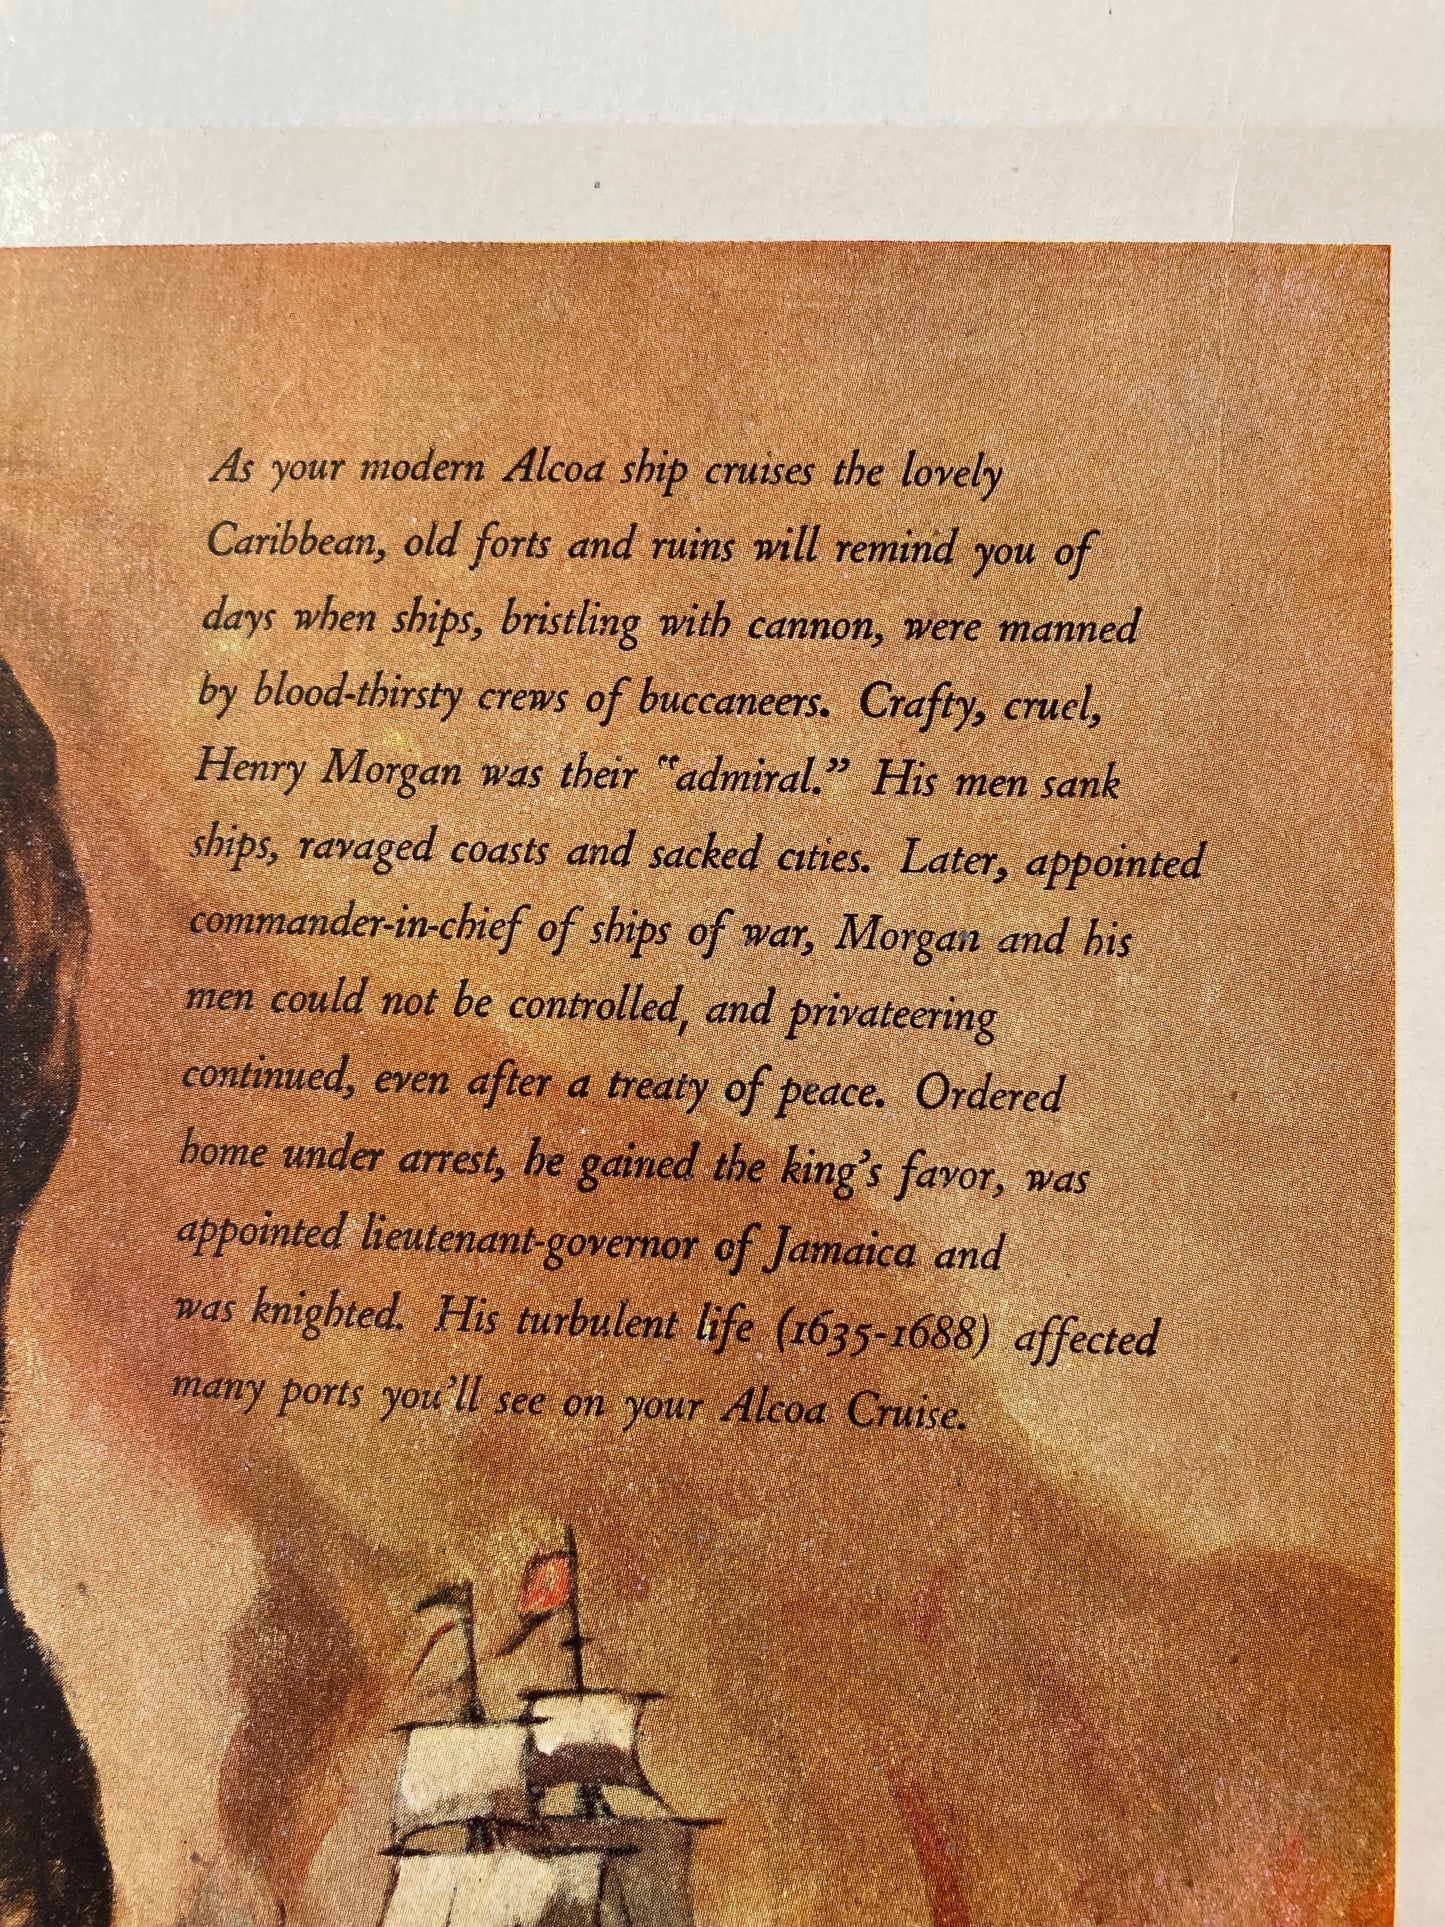 As your modern Alcoa ship cruises the lovely
Caribbean, old forts and ruins will remind you of
days when ships, bristling with cannon, were manned
by blood-thirsty crews of buccaneers. Crafty, cruel,
Henry Morgan was their “admiral.” His men sank
ships, ravaged coasts and sacked cities. Later, appointed
commander-in-chief of ships of war, Morgan and his
men could not be controlled, and privateering
continued, even after a treaty of peace. Ordered
home under arrest, he gained the king’s favor, was
appointed lieutenant-governor of Jamaica and
was knighted. His turbulent life (1635-1688) affected
many ports you’ll see on your Alcoa Cruise.